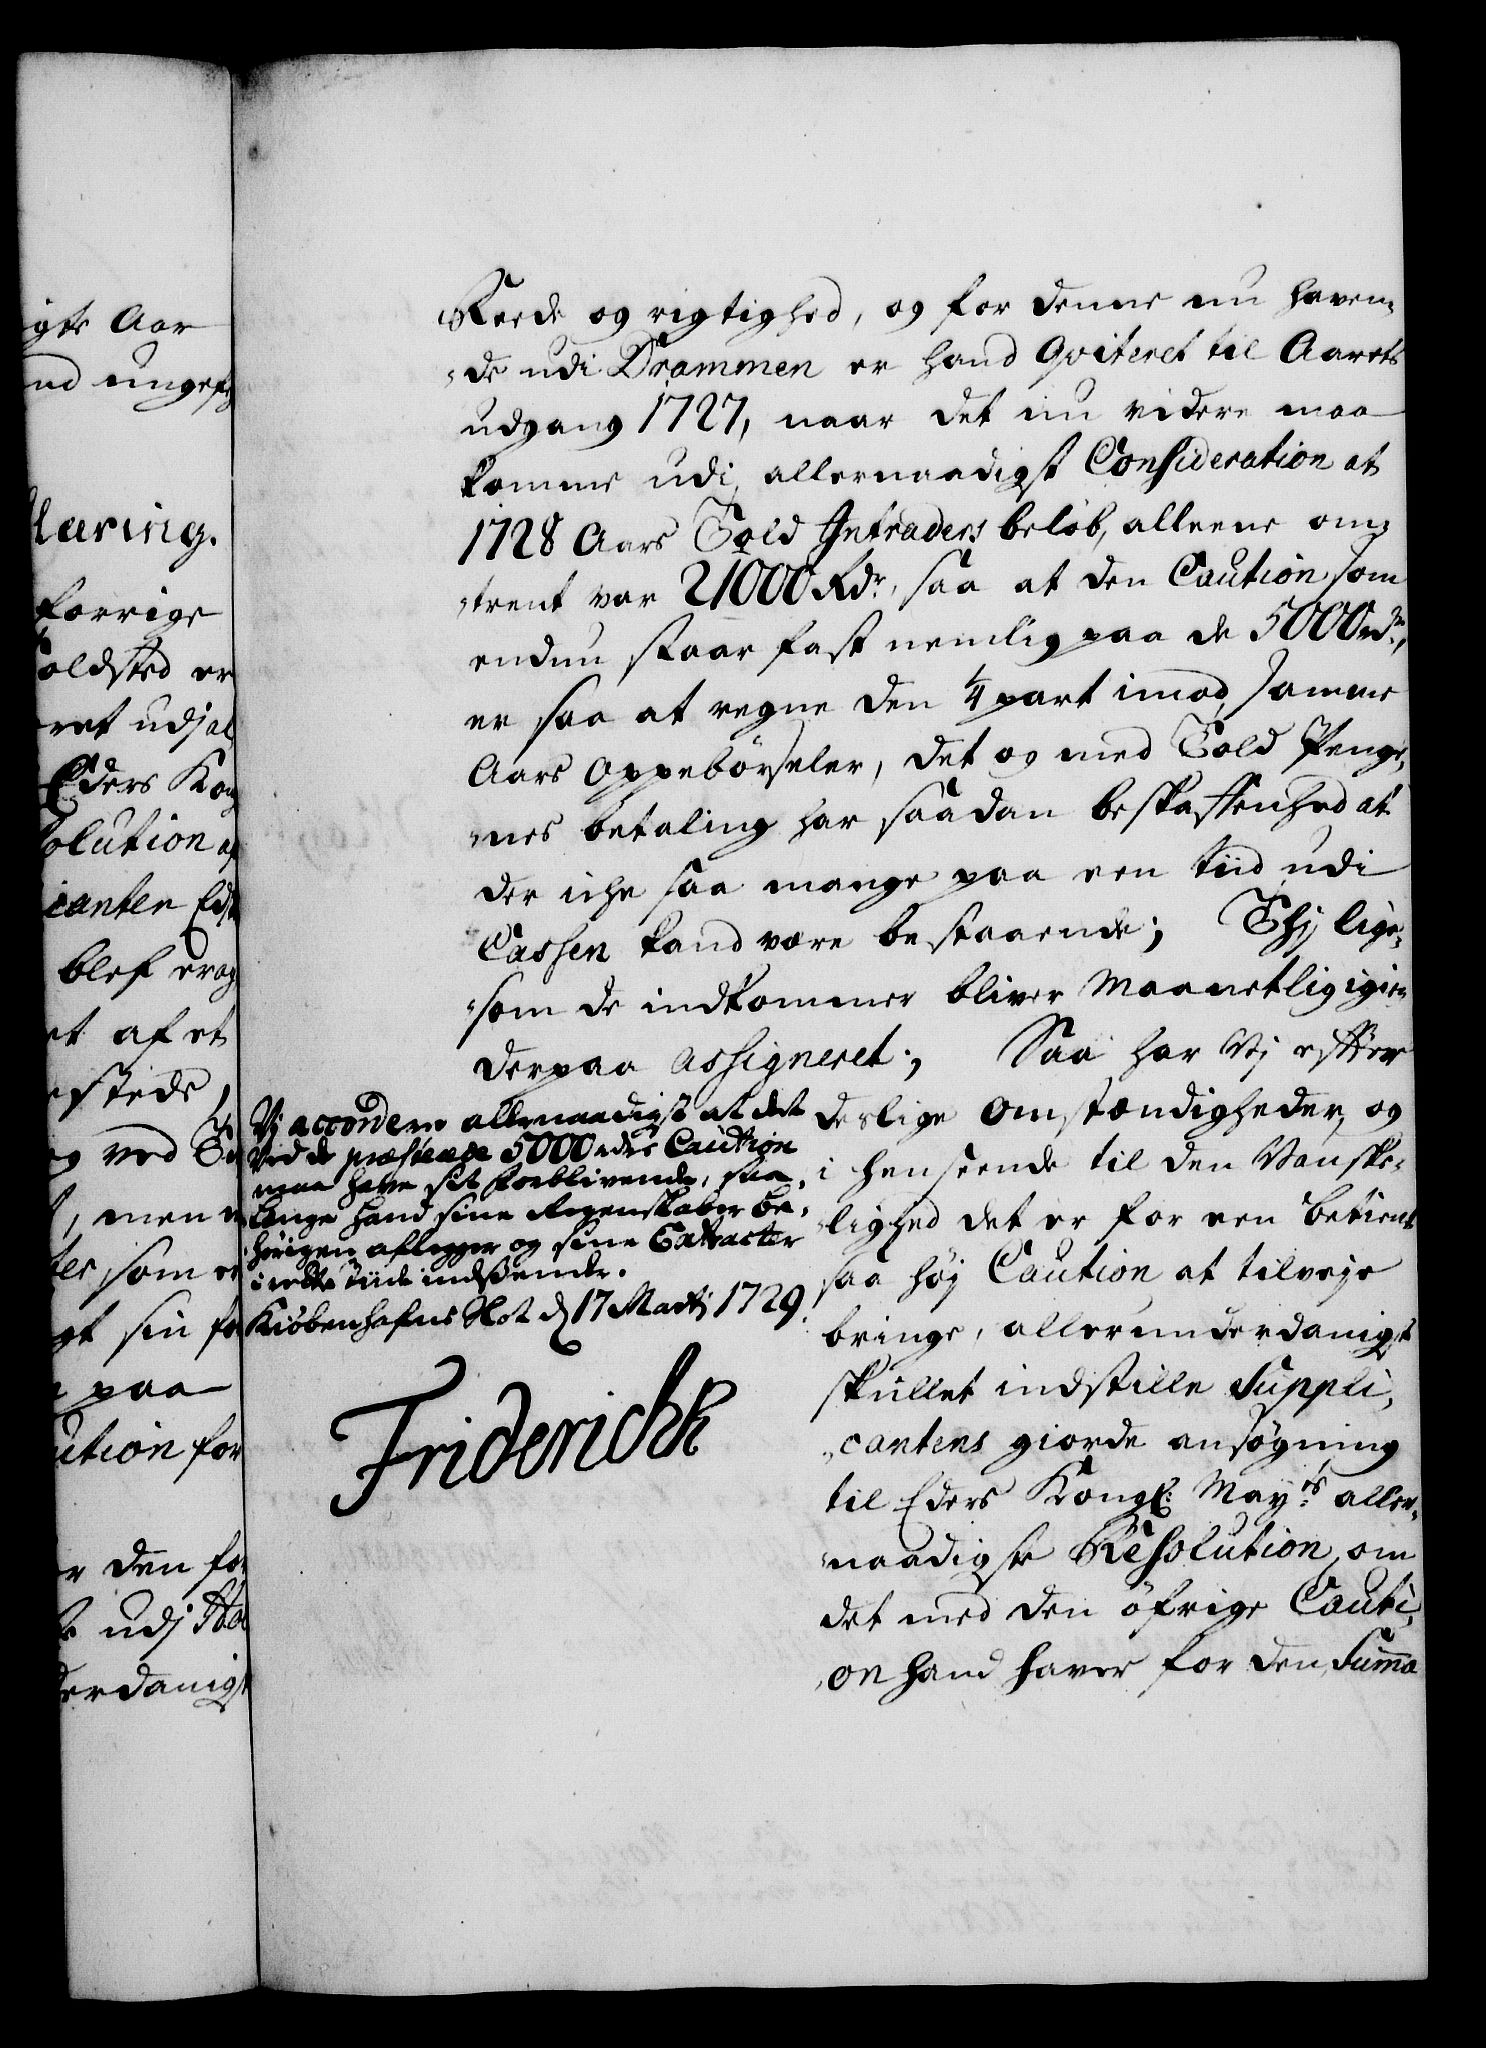 igte Aar
nd ungefe
laring.
forrige
oldsted er
ret udj al
Eders Kon
olution af
icanten Eds
blef erag
et af et
estede,
og ved To
, men
ter som er
gt sin fo
paa
ution for
r den for
udj Sta
derdanigst
Reede og rigtighed, og for denne nu haven-
-de udi Drammen er hand Qviteret til Aarets
udgang 1727, naar det nu videre maa
komme udi allernaadigst Consideration at
1728 Aars Told Intraders beløb, alleene om-
-trent var 21000 Rdr, saa at den Caution som
endnu staar fast nemlig paa de 5000 rdr,
er saa at regne den 1/4 part imod samme
Aars Oppebørseler, det og med Told Penge-
-nes betaling har saadan beskaffenhed at
der iche saa mange paa een tiid udi
Cassen kand være bestaaende; Thj lige-
-som de indkommer bliver Maanetlig igien
derpaa assigneret; Saa har Vj effter
deslige omstændigheder, og
i henseende til den Vanske-
-lighed det er for een betient
saa høj Caution at tilveje
bringe, allerunderdanigst
skullet indstille Suppli-
-cantens giorde ansøgning
til Eders Kongl: Mayts aller-
-naadigste Resolution, om
det med den øfrige Cauti-
-on hand haver for den Summa
Vj accordere allernaadigst at det
ved de præsterede 5000 rdrs Caution
maa have sit forblivende, saa
længe hand sine Regenskaber be-
hørigen aflegger og sine Extracter
i rette Tiide indsender.
Kiøbenhafns Slot d 17 Martj 1729.
Friderich R